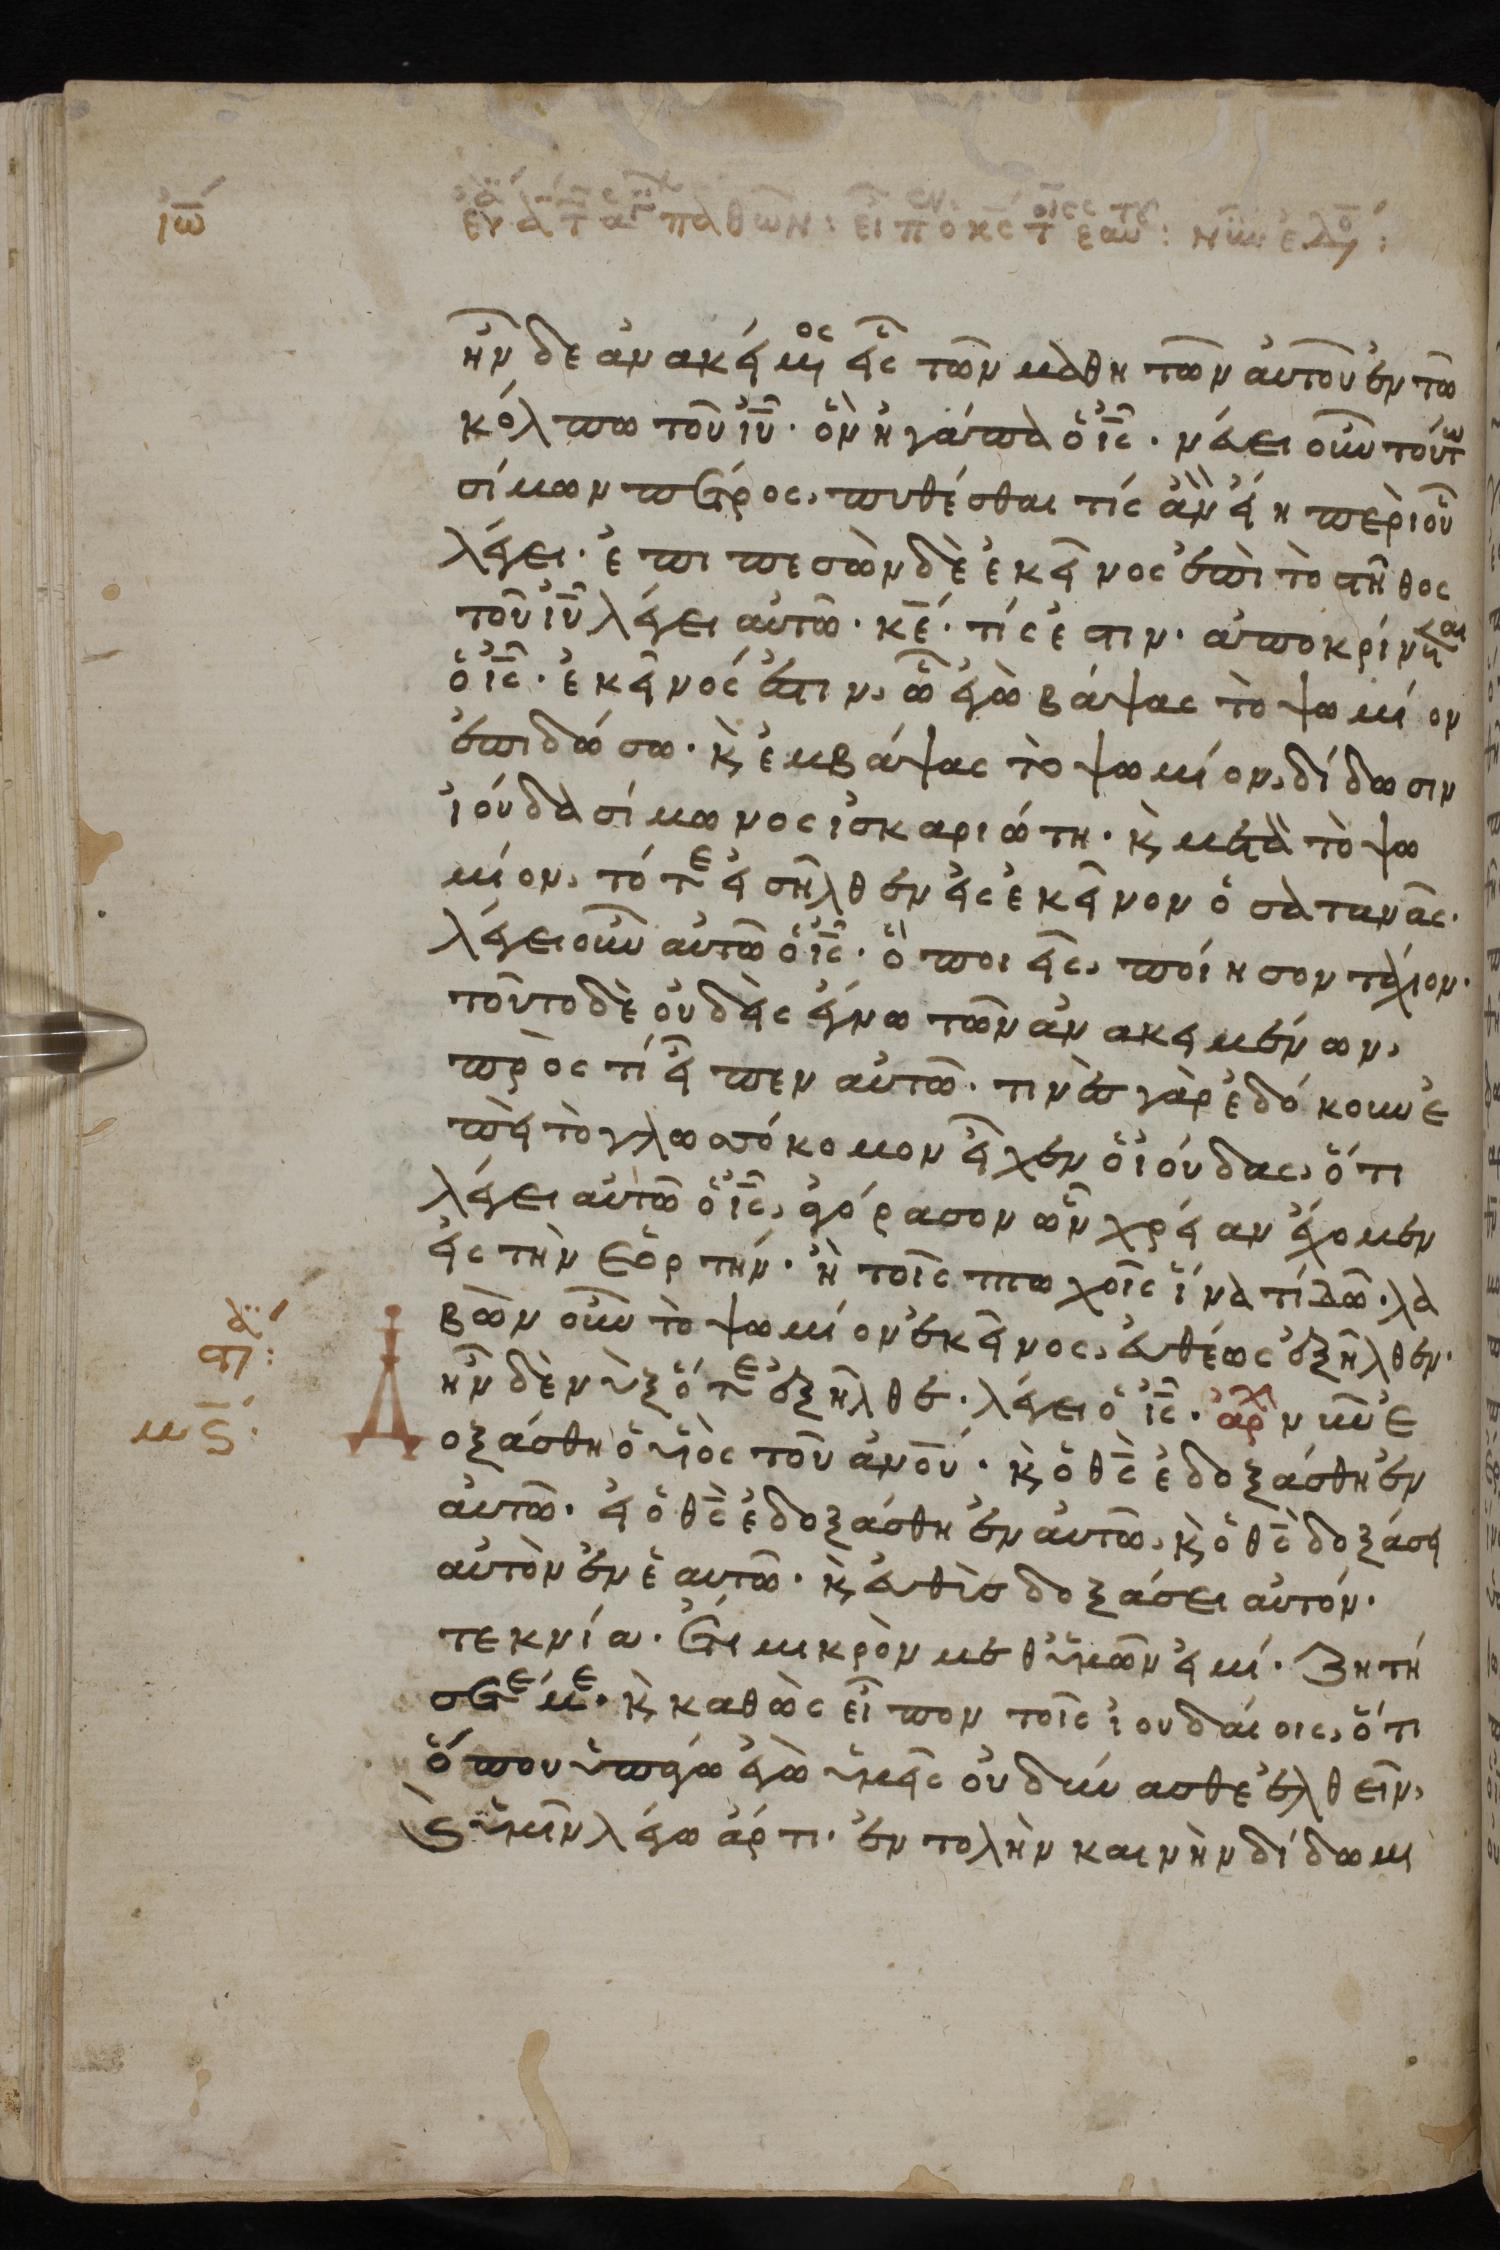 ἰω̅
ἦν δε ἀνακείμενος εἷς τῶν μαθητῶν αὐτοῦ ἐν τῶ
κόλπω τοῦ ἰῦ· ὃν ἠγάπα ὁ ἰς̅· νεύει οὖν τούτω
σίμων πέτρος, πυθέσθαι τίς ἂν εἴη περὶ οὗ
λέγει· ἐπιπεσὼν δὲ ἐκεῖνος ἐπὶ τὸ στῆθος
τοῦ ἰῦ λέγει αὐτῶ· κε̅· τίς ἐστιν· ἀποκρίνεται
ὁ ἰς̅· ἐκεῖνός ἐστιν, ὧ ἐγὼ βάψας τὸ ψωμίον
ἐπιδώσω· κ̀ ἐμβάψας τὸ ψωμίον, δίδωσιν
ἰούδα σίμωνος ἰσκαριώτη· κ̀ μετὰ τὸ ψω
μίον, τότε εἰσῆλθεν εἰς ἐκεῖνον ὁ σατανᾶς·
λέγει οὖν αὐτῶ ὁ ἰς̅· ὃ ποιεῖς, ποίησον τάχιον·
τοῦτο δὲ οὐδεὶς ἔγνω τῶν ἀνακειμένων,
πρὸς τί εἶπεν αὐτῶ· τινὲς γὰρ ἐδόκουν ἐ
πεὶ τὸ γλωσσόκομον εἶχεν ὁ ἰούδας, ὅτι
λέγει αὐτῶ ὁ ἰς̅, ἀγόρασον ὧν χρείαν ἔχομεν
εἰς τὴν ἑορτήν· ἢ τοῖς πτωχοῖς ἵνα τί δῶ· λα
βὼν οὖν τὸ ψωμίον ἐκεῖνος, εὐθέως ἐξῆλθεν·
ἦν δὲ νὺξ ὅτε ἐξῆλθε· λέγει ὁ ἰς̅· ἀρχ νῦν ἐ
Δοξάσθη ὁ υἱὸς τοῦ ἀνου̅· κ̀ ὁ θς̅ ἐδοξάσθη ἐν
αὐτῶ· εἰ ὁ θς̅ ἐδοξάσθη ἐν αὐτῶ, κ̀ ὁ θς̅ δοξάσει
αὐτὸν ἐν ἑαυτῶ· κ̀ εὐθὺς δοξάσει αὐτόν·
τεκνία· ἔτι μικρὸν μεθ ὑμῶν εἰμί· ζητή
σετέ με· κ̀ καθὼς εἶπον τοῖς ἰουδαίοις, ὅτι
ὅπου ὑπάγω ἐγὼ ὑμεῖς οὐ δύνασθε ἐλθεῖν,
κ̀ ὑμῖν λέγω ἄρτι· ἐντολὴν καινὴν δίδωμι